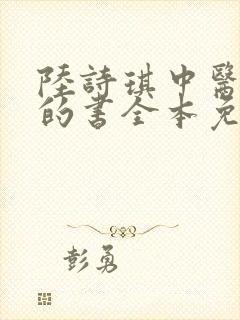 陸詩琪中醫
的書全本免
彭勇